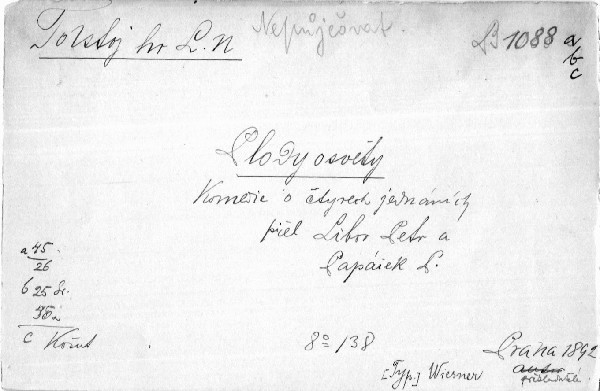 Tolstoj hr L. N
Nepůjčovat.
LB 1088 a
b
c
Plody osvěty
Komedie o čtyrech jednáních
přel Libor Petr a
Papáček P.
a 45.
26
b 25
c Košut
8° 138
Praha 1892
[Typ.] Wiesner